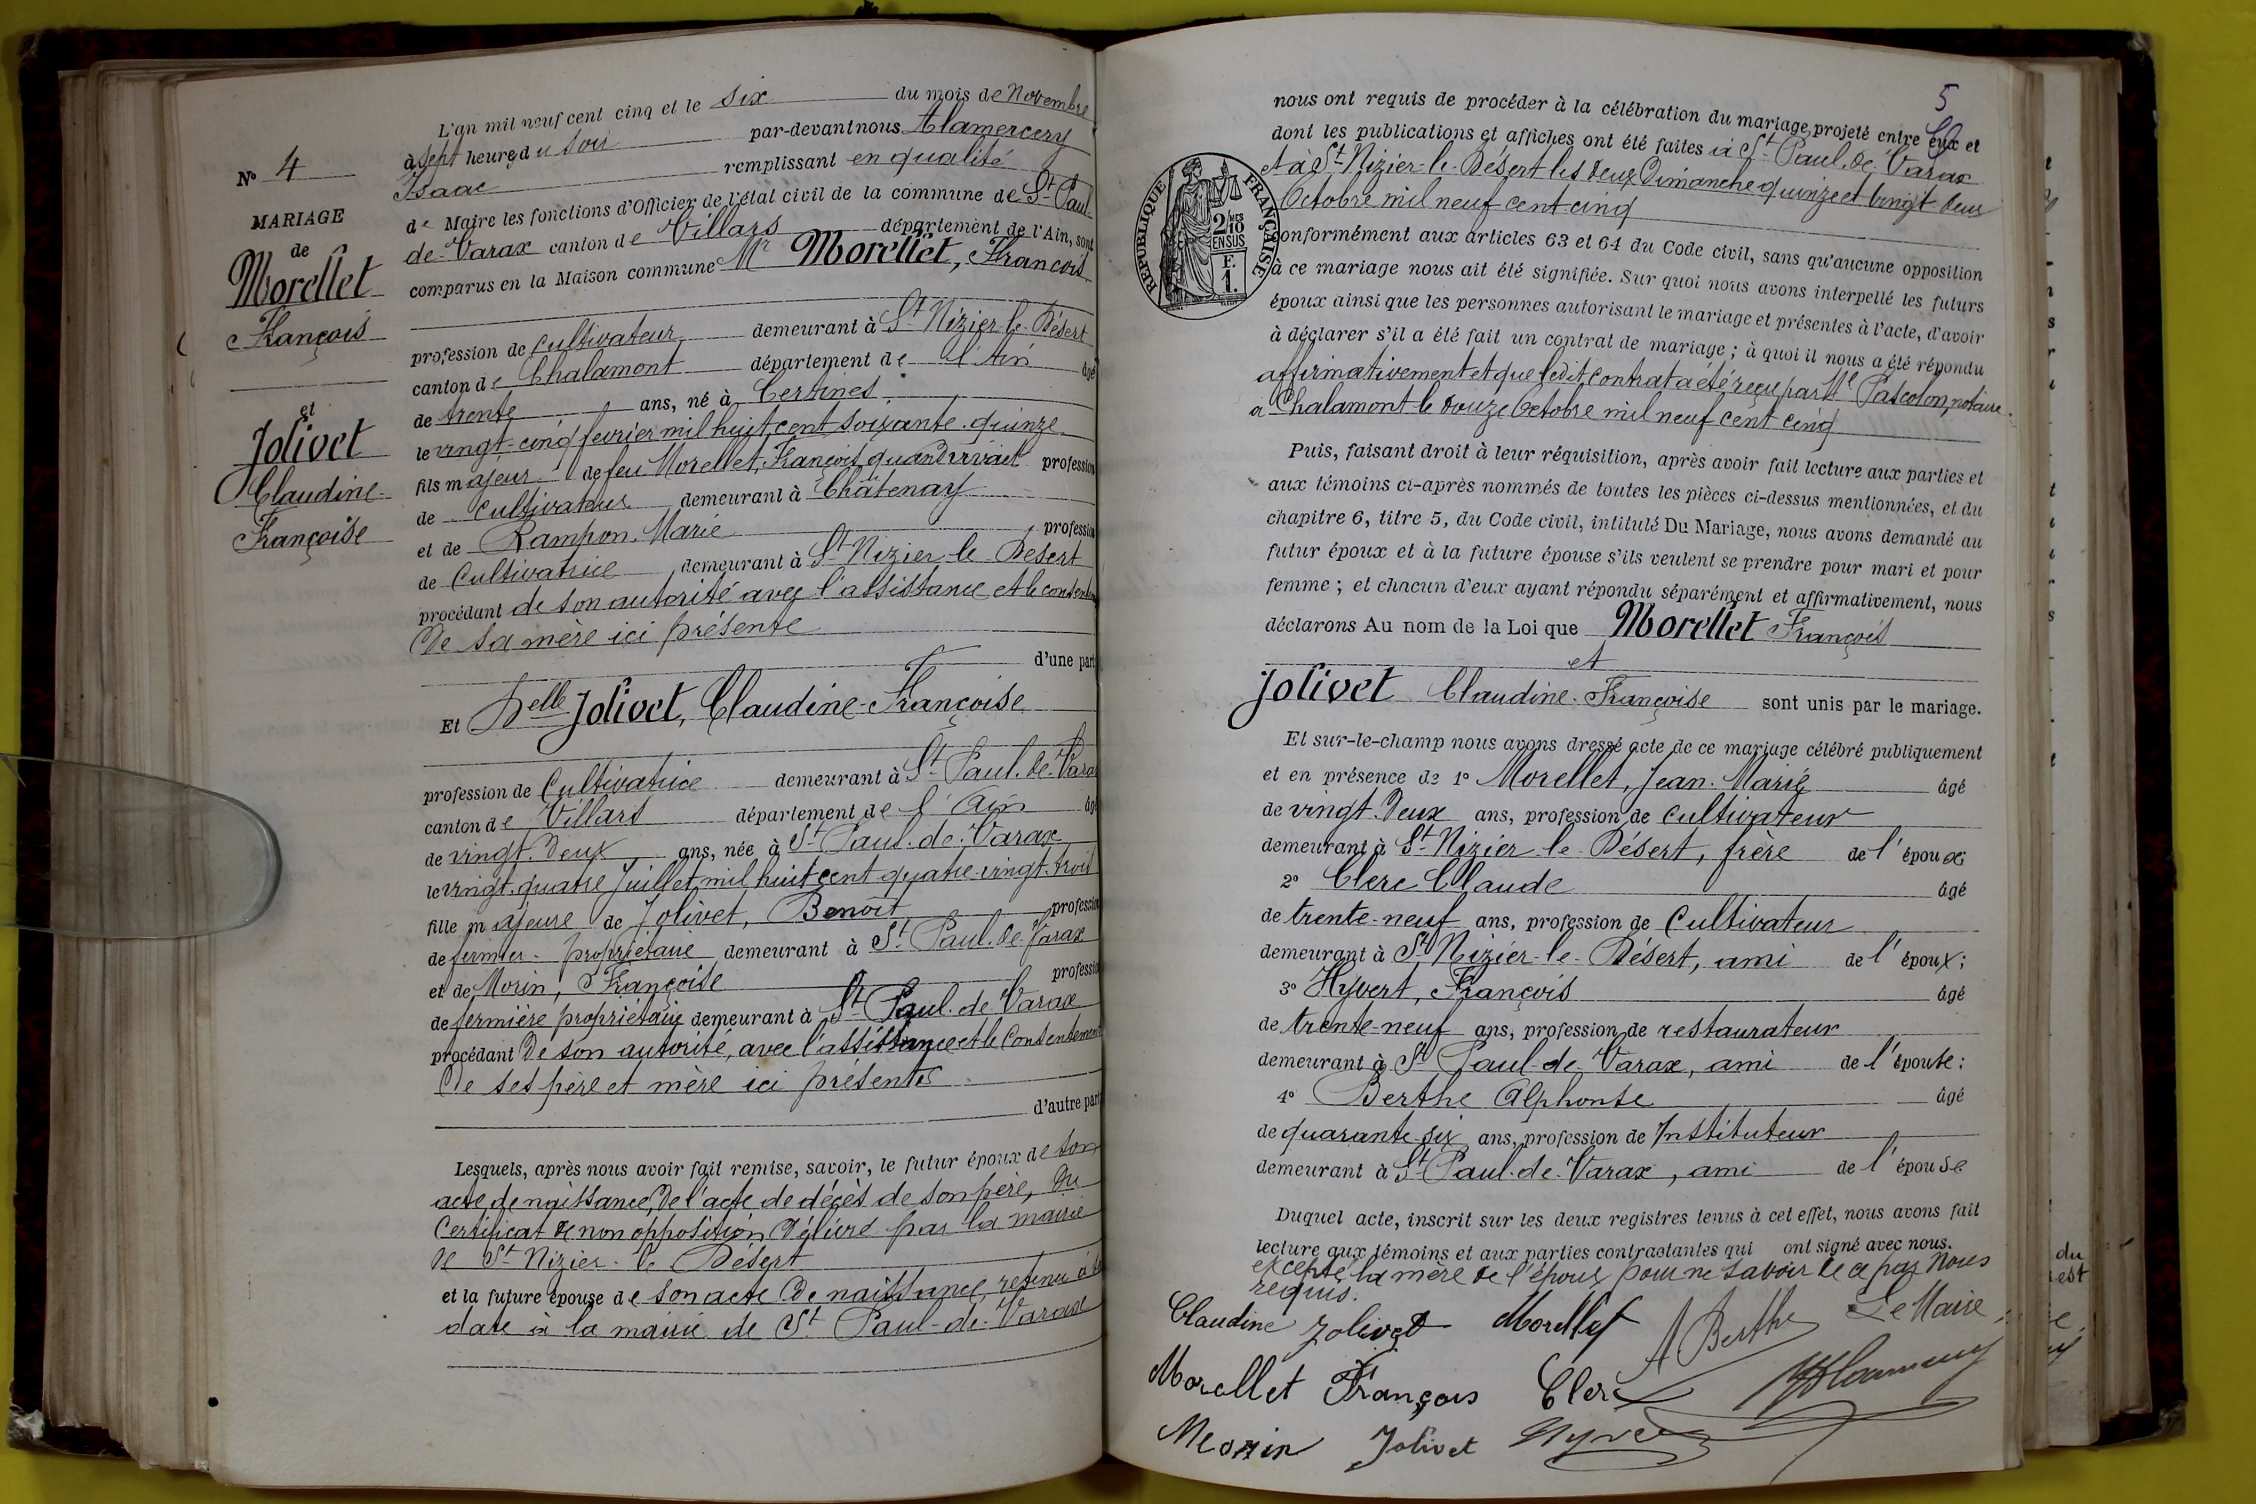 N° 4
MARIAGE
de
Morellet
François
et
Jolivet
Claudine
Françoise
L'an mil neuf cent cinq et le six du mois de Novembre
à sept heures du soir par-devant nous Alamercery
Isaac remplissant en qualité
de Maire les fonctions d'Officier de l'état civil de la commune de St Paul-
de-Varax canton de Villars département de l'Ain, sont
comparus en la Maison commune Mr Morellet, François
profession de cultivateur demeurant à St Nizier-le-Désert
canton de Chalamont département de l'Ain âgé
de trente ans, né à Certines
le vingt-cinq février mil huit cent soixante-quinze
fils majeur de feu Morellet, François quand vivait profession
de cultivateur demeurant à Châtenay
et de Rampon Marie profession
de Cultivatrice demeurant à St Nizier-le-Désert
procédant de son autorité avec l'assistance et le consentement
de sa mère ici présente
d'une part
Et Delle Jolivet, Claudine-Françoise
profession de Cultivatrice demeurant à St Paul-de-Varax
canton de Villars département de l'Ain âgé
de vingt-deux ans, née à St Paul-de-Varax
le vingt-quatre Juillet mil huit cent quatre-vingt-trois
fille majeure de Jolivet, Benoît profession
de fermier-propriétaire demeurant à St Paul-de-Varax
et de Morin, Françoise profession
de fermière propriétaire demeurant à St Paul-de-Varax
procédant de son autorité, avec l'assistance et le consentement
de ses père et mère ici présents
d'autre part
Lesquels, après nous avoir fait remise, savoir, le futur époux de son
acte de naissance, de l'acte de décès de son père, du
Certificat de non opposition délivré par la mairie
de St Nizier-le-Désert
et la future épouse de son acte de naissance, retenu à sa
date à la mairie de St Paul-de-Varax
5
nous ont requis de procéder à la célébration du mariage projeté entre eux et
dont les publications et affiches ont été faites à St Paul-de-Varax
et à St Nizier-le-Désert les deux Dimanche quinze et vingt deux
Octobre mil neuf cent cinq
RÉPUBLIQUE FRANÇAISE
2/10 MES
EN SUS
F.
1.
conformément aux articles 63 et 64 du Code civil, sans qu'aucune opposition
à ce mariage nous ait été signifiée. Sur quoi nous avons interpellé les futurs
époux ainsi que les personnes autorisant le mariage et présentes à l'acte, d'avoir
à déclarer s'il a été fait un contrat de mariage ; à quoi il nous a été répondu
affirmativement et que ledit contrat a été reçu par Me Pascolon, notaire
à Chalamont le douze Octobre mil neuf cent cinq
Puis, faisant droit à leur réquisition, après avoir fait lecture aux parties et
aux témoins ci-après nommés de toutes les pièces ci-dessus mentionnées, et du
chapitre 6, titre 5, du Code civil, intitulé Du Mariage, nous avons demandé au
futur époux et à la future épouse s'ils veulent se prendre pour mari et pour
femme ; et chacun d'eux ayant répondu séparément et affirmativement, nous
déclarons Au nom de la Loi que Morellet François
et
Jolivet Claudine-Françoise sont unis par le mariage.
Et sur-le-champ nous avons dressé acte de ce mariage célébré publiquement
et en présence de 1° Morellet, Jean-Marie âgé
de vingt-deux ans, profession de cultivateur
demeurant à St Nizier-le-Désert, frère de l'époux;
2° Clerc Claude âgé
de trente-neuf ans, profession de Cultivateur
demeurant à St Nizier-le-Désert, ami de l'époux;
3° Hyvert, François âgé
de trente-neuf ans, profession de restaurateur
demeurant à St Paul-de-Varax, ami de l'épouse;
4° Berthe Alphonse âgé
de quarante-six ans, profession de Instituteur
demeurant à St Paul-de-Varax, ami de l'épouse
Duquel acte, inscrit sur les deux registres tenus à cet effet, nous avons fait
lecture aux témoins et aux parties contractantes qui ont signé avec nous.
excepté la mère de l'époux pour ne savoir de ce par Nous
requis.
Claudine Jolivet Morellet A Berthe Le Maire
Morellet François Clerc
Morin Jolivet Hyvert